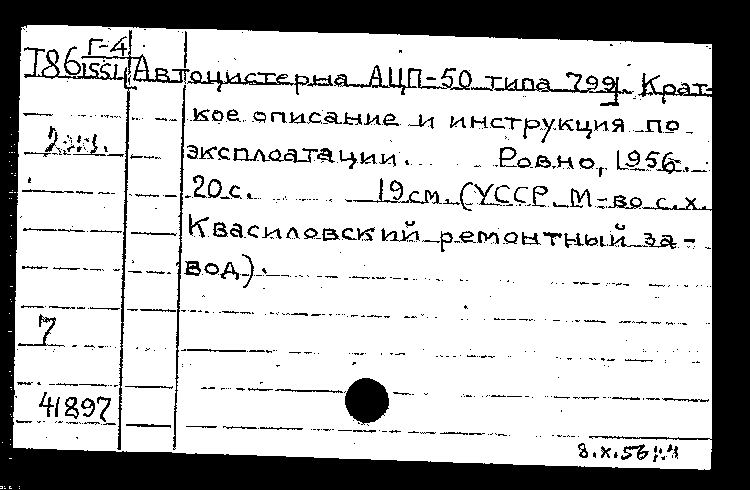 Г-4
Т86 1551
[Автоцистерна АЦП-50 типа 799]. Крат-
кое описание и инструкция по
2экз.
эксплоатации. Ровно, 1956.
20с. 19см. (УССР. М-во с.х.
Квасиловский ремонтный за-
вод).
7
41897
8.X.56